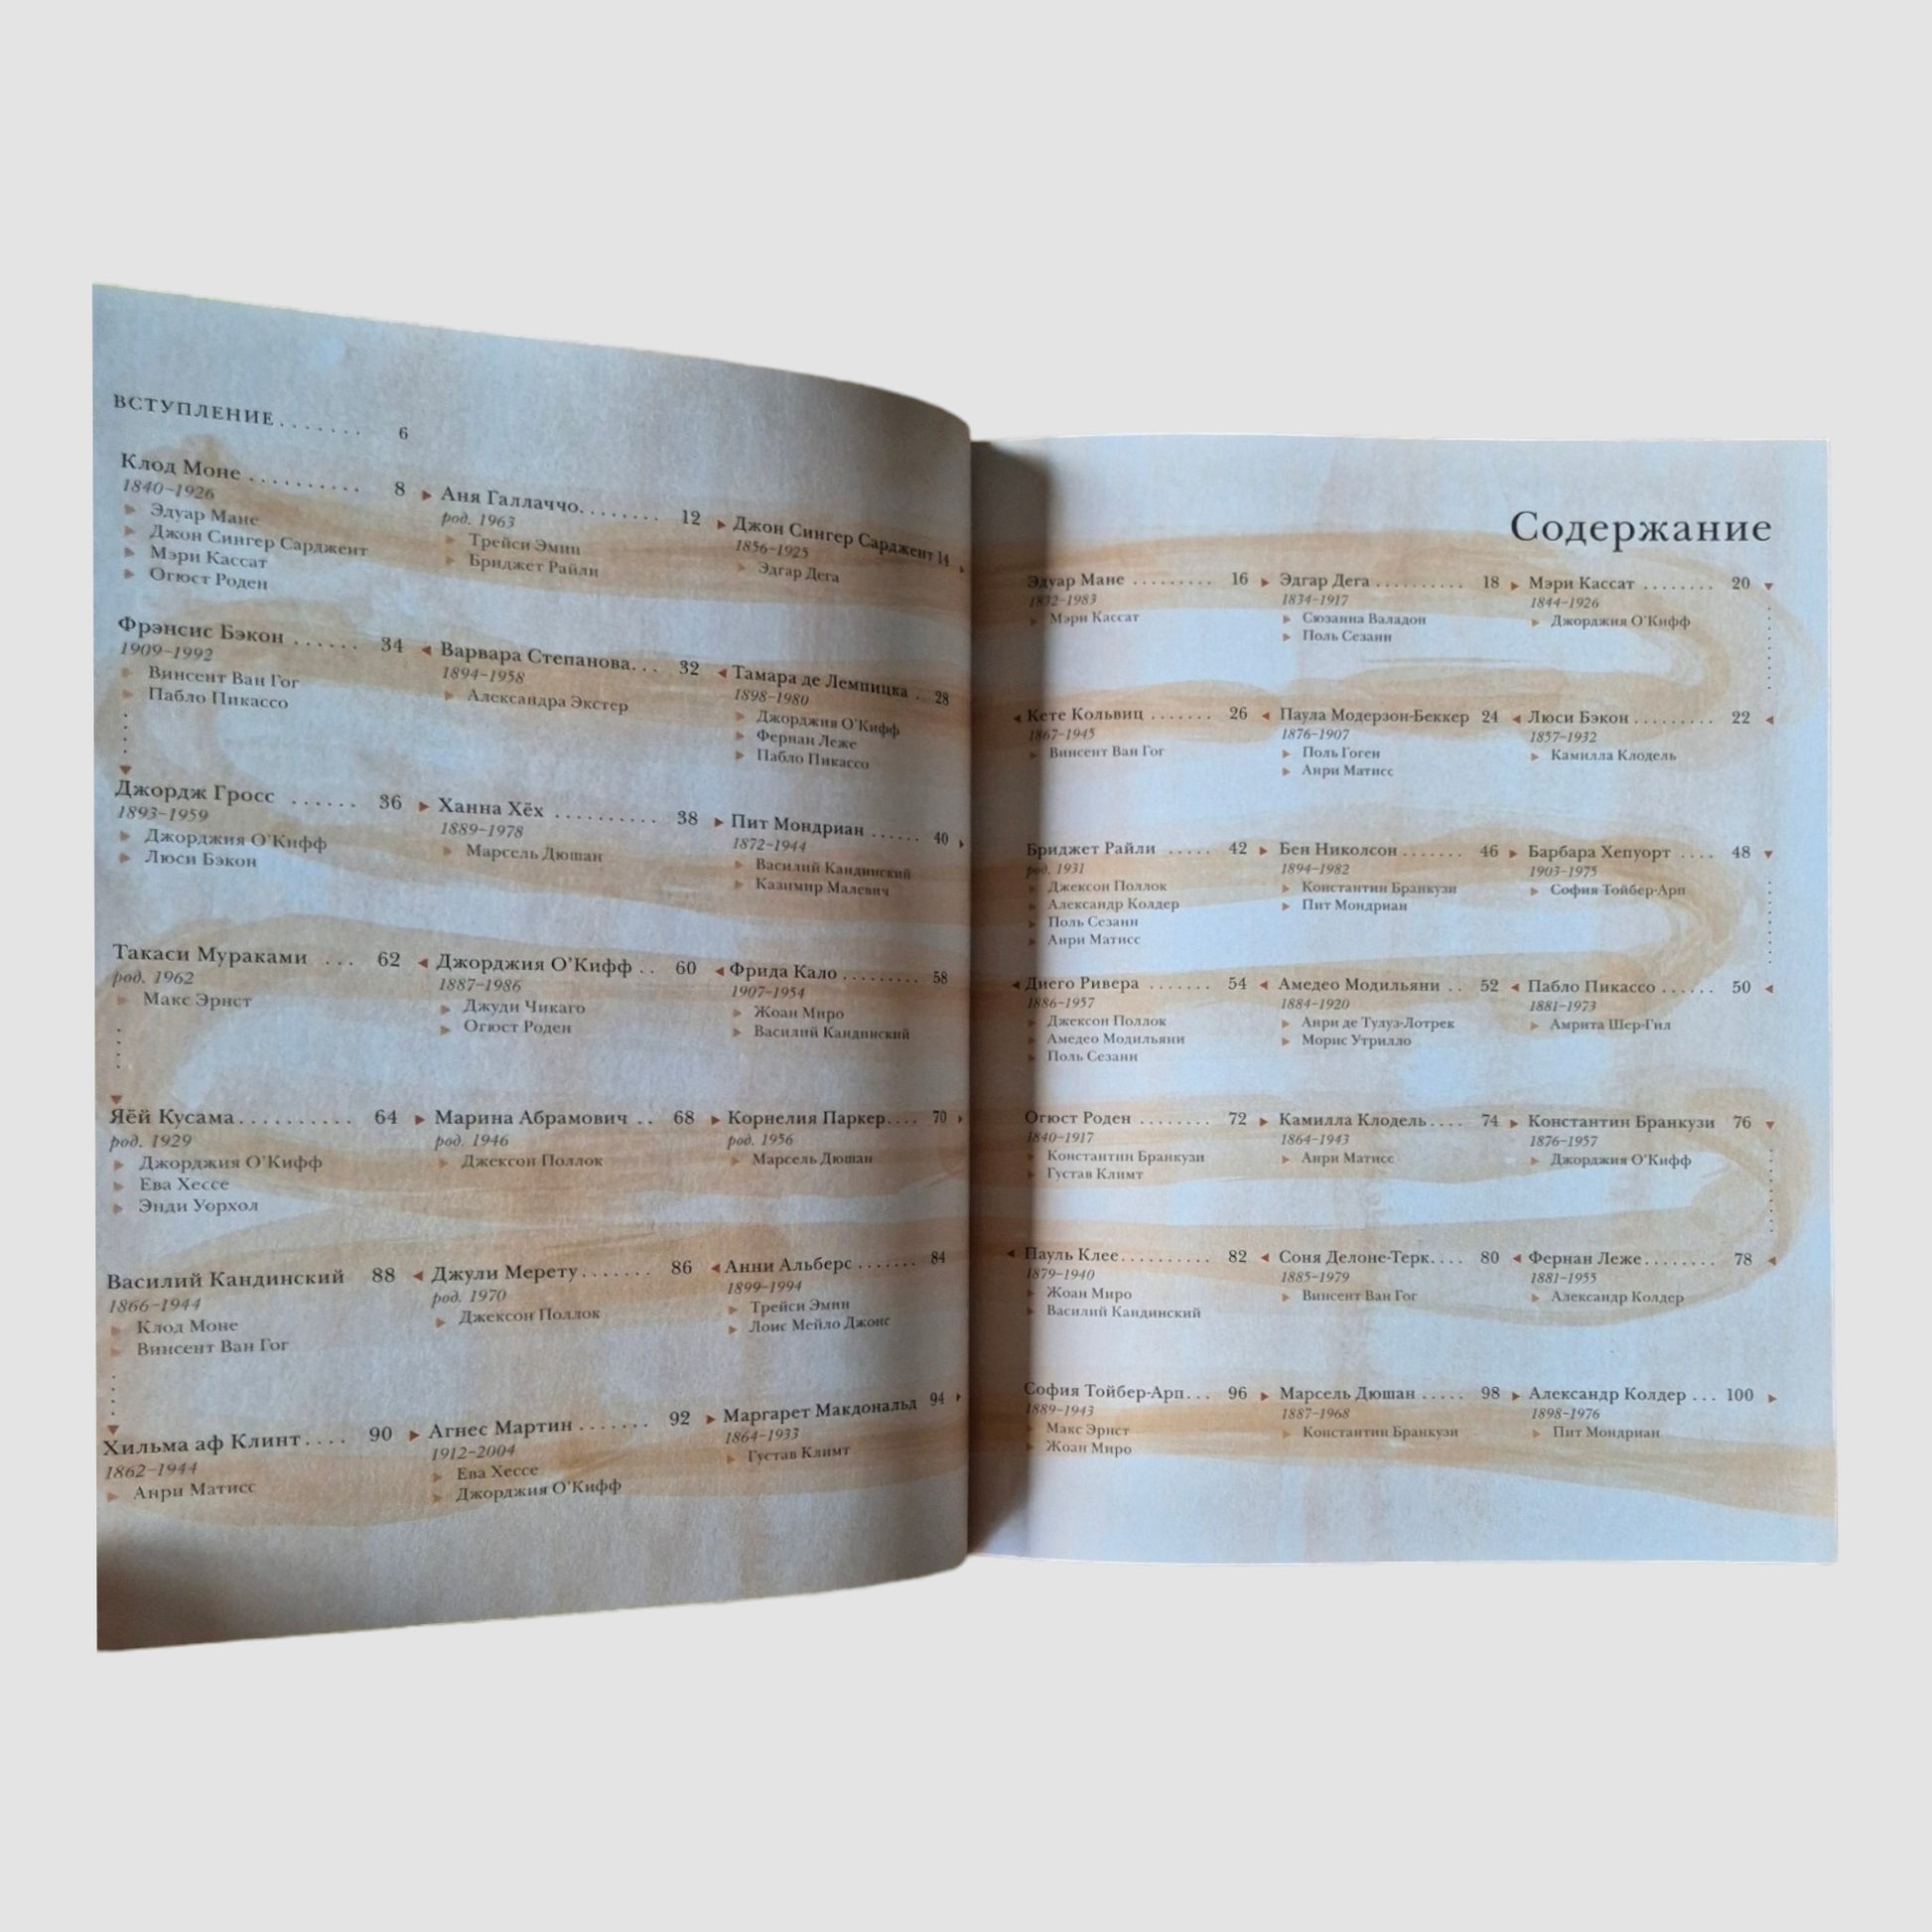 ВСТУПЛЕНИЕ....... 6
Клод Моне .......... 8
1840–1926
Эдуар Мане
Джон Сингер Сарджент
Мэри Кассат
Огюст Роден
Аня Галлаччо........ 12
род. 1963
Трейси Эмин
Бриджет Райли
Джон Сингер Сарджент 14
1856–1925
Эдгар Дега
Фрэнсис Бэкон ...... 34
1909–1992
Винсент Ван Гог
Пабло Пикассо
Варвара Степанова... 32
1894–1958
Александра Экстер
Тамара де Лемпицка . 28
1898–1980
Джорджия О'Кифф
Фернан Леже
Пабло Пикассо
Джордж Гросс ...... 36
1893–1959
Джорджия О'Кифф
Люси Бэкон
Ханна Хёх .......... 38
1889–1978
Марсель Дюшан
Пит Мондриан ...... 40
1872–1944
Василий Кандинский
Казимир Малевич
Такаси Мураками ... 62
род. 1962
Макс Эрнст
Джорджия О'Кифф .. 60
1887–1986
Джуди Чикаго
Огюст Роден
Фрида Кало ......... 58
1907–1954
Жоан Миро
Василий Кандинский
Яёй Кусама.......... 64
род. 1929
Джорджия О'Кифф
Ева Хессе
Энди Уорхол
Марина Абрамович .. 68
род. 1946
Джексон Поллок
Корнелия Паркер.... 70
род. 1956
Марсель Дюшан
Василий Кандинский 88
1866–1944
Клод Моне
Винсент Ван Гог
Джули Мерету....... 86
род. 1970
Джексон Поллок
Анни Альберс ....... 84
1899–1994
Трейси Эмин
Лоис Мейло Джонс
Хильма аф Клинт.... 90
1862–1944
Анри Матисс
Агнес Мартин ....... 92
1912–2004
Ева Хессе
Джорджия О'Кифф
Маргарет Макдональд 94
1864–1933
Густав Климт
Содержание
Эдуар Мане ......... 16
1832–1983
Мэри Кассат
Эдгар Дега .......... 18
1834–1917
Сюзанна Валадон
Поль Сезанн
Мэри Кассат ........ 20
1844–1926
Джорджия О'Кифф
Кете Кольвиц ....... 26
1867–1945
Винсент Ван Гог
Паула Модерзон-Беккер 24
1876–1907
Поль Гоген
Анри Матисс
Люси Бэкон ......... 22
1857–1932
Камилла Клодель
Бриджет Райли ..... 42
род. 1931
Джексон Поллок
Александр Колдер
Поль Сезанн
Анри Матисс
Бен Николсон ....... 46
1894–1982
Константин Бранкузи
Пит Мондриан
Барбара Хепуорт .... 48
1903–1975
София Тойбер-Арп
Диего Ривера ....... 54
1886–1957
Джексон Поллок
Амедео Модильяни
Поль Сезанн
Амедео Модильяни .. 52
1884–1920
Анри де Тулуз-Лотрек
Морис Утрилло
Пабло Пикассо ...... 50
1881–1973
Амрита Шер-Гил
Огюст Роден ........ 72
1840–1917
Константин Бранкузи
Густав Климт
Камилла Клодель.... 74
1864–1943
Анри Матисс
Константин Бранкузи 76
1876–1957
Джорджия О'Кифф
Пауль Клее.......... 82
1879–1940
Жоан Миро
Василий Кандинский
Соня Делоне-Терк.... 80
1885–1979
Винсент Ван Гог
Фернан Леже........ 78
1881–1955
Александр Колдер
София Тойбер-Арп... 96
1889–1943
Макс Эрнст
Жоан Миро
Марсель Дюшан ..... 98
1887–1968
Константин Бранкузи
Александр Колдер ... 100
1898–1976
Пит Мондриан